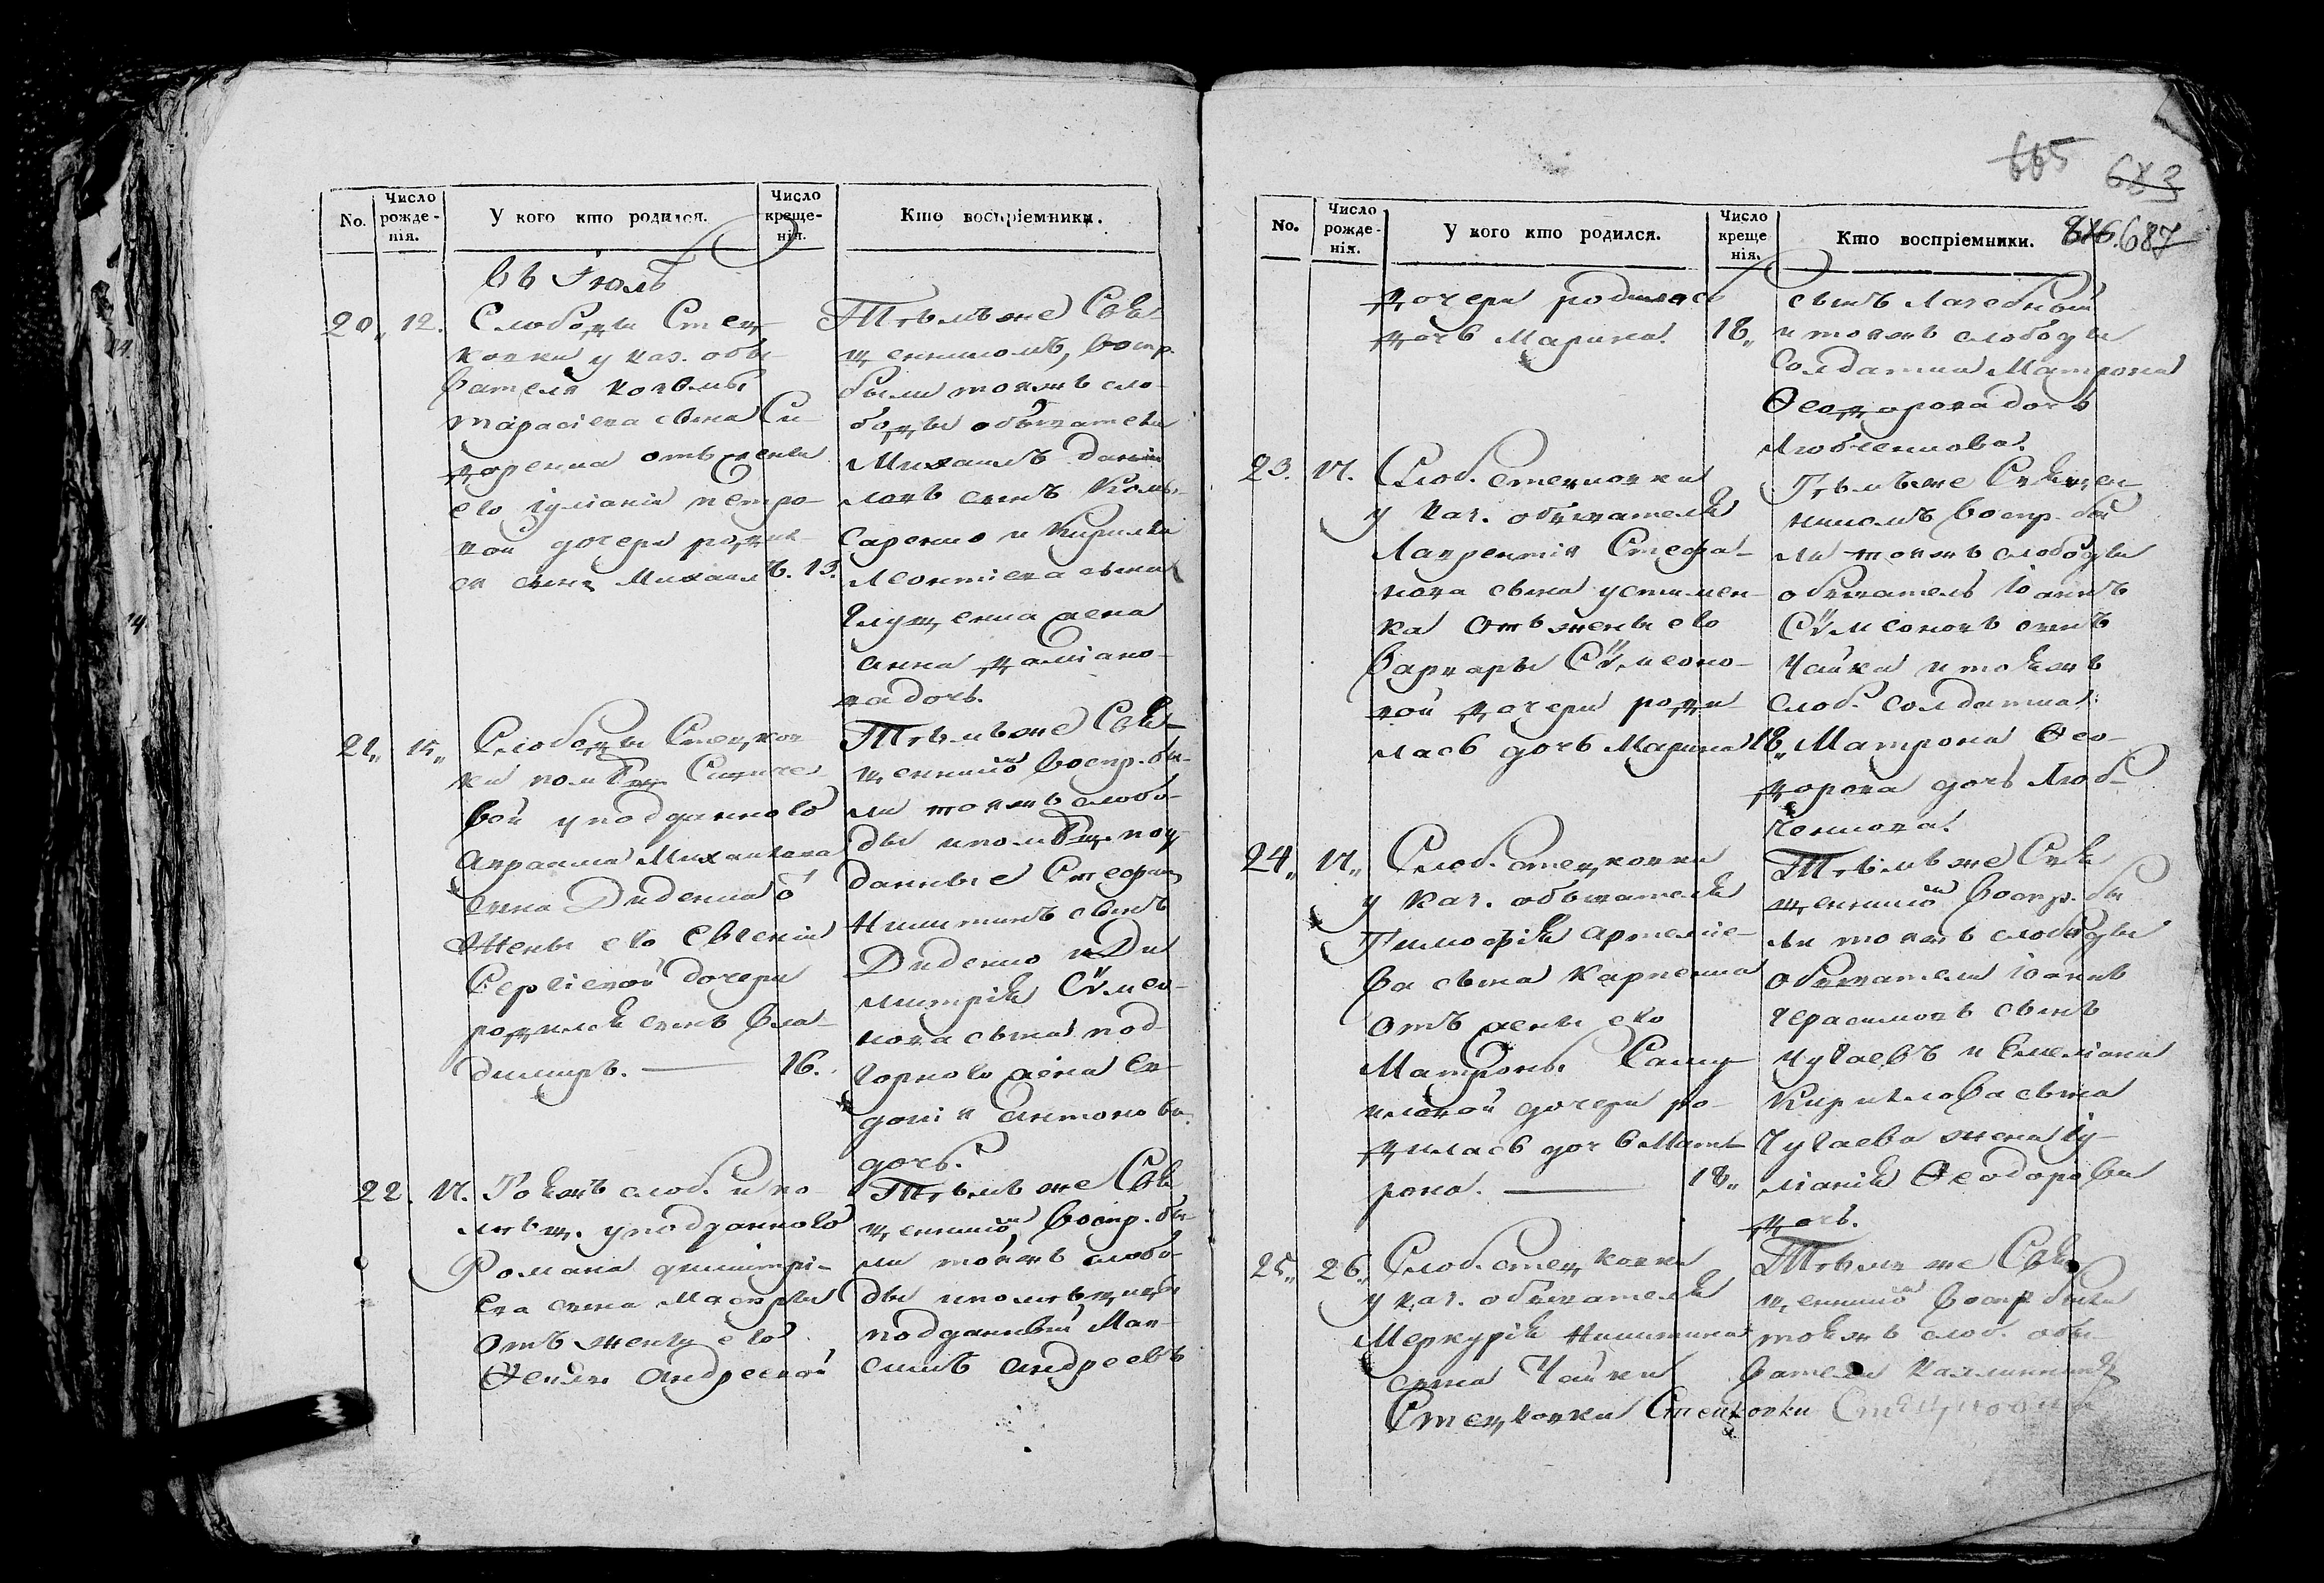 No.
Число рожденія.
У кого кто родился.
Число крещенія.
Кто воспріемники.
въ Іюлѣ
20, 12.
Слободы Стец-
ковки у каз. обы-
вателя Козьмы
Тарасіева сына Си-
доренка отъ жены
его Іуліаніи Петро-
вой дочери родил-
ся сынъ Михаилъ. 13.
Тѣмъ же Свя-
щенникомъ, воспр.
были тояжъ сло-
боды обыватели
Михаилъ Даніи-
ловъ сынъ
и Кирилла
Леонтіева сына
Глущенка жена
Анна Даміано-
ва дочь.
21, 15,
Слободы Стецков-
ки помѣщ.
вой у подданного
Авраама Михаилова
сына Диденка о͏тъ
Жены его Евгеніи
Сергіевой дочери
родился сынъ Вла-
димиръ. — 16.
Тѣмъ же Свя-
щенникомъ воспр. бы-
ли тояжъ слобо-
ды и помѣщ. под-
данные Стефанъ
Никитинъ сынъ
Диденко и Ди-
митрія Сѵмео-
нова сына Под-
горного жена Ев-
докія Антонова
дочь.
22. 17.
Тояжъ слоб. и по-
мѣщ. у подданного
Романа Димитрі-
ева сына
отъ жены его
Ѳеклы Андреевой
Тѣмъ же Свя-
щенникомъ воспр. бы-
ли тояжъ слобо-
ды и помѣщицы
подданный Мак-
симъ Андреевъ
665 683
686. 687
No.
Число рожденія.
У кого кто родился.
Число креще нія.
Кто воспріемники.
дочери родилась
дочь Марина. 18,
сынъ Лагебный
и тояжъ слободы
солдатка Матрона
Ѳеодорова дочь
Любченкова.
23. 17.
Слоб. Стецковки
у каз. обывателя
Лаврентія Стефа-
нова сына Устимен-
ка отъ жены его
Варвары Сѵмеоно-
вой дочери роди-
лась дочь Марина 18,
Тѣмъ же Священ-
никомъ воспр. бы-
ли тояжъ слободы
обыватель Іоаннъ
Сѵмеоновъ сынъ
Чайка и тояжъ
слоб. солдатка
Матрона Ѳео-
дорова дочь Люб-
ченкова.
24, 17,
Слоб. Стецковки
у каз. обывателя
Тимофѣя Артеміе-
ва сына Карпенка
отъ жены его
Матроны Саму-
иловой дочери ро-
дилась дочь Мат-
рона. — 18,
Тѣмъ же Свя-
щенникомъ воспр. бы-
ли тояжъ слободы
обыватели Іоаннъ
Герасимовъ сынъ
Чугаевъ и Емеліана
Кириллова сына
Чугаева жена Іу-
ліанія Ѳеодорова
дочь.
25, 26,
Слоб. Стецковки
у каз. обывателя
Меркурія Никитина
сына Чайки
Тѣмъ же Свя-
щенникомъ воспр. были
тояжъ слоб. обы-
ватели
Стецковки Стецковки Стецковки